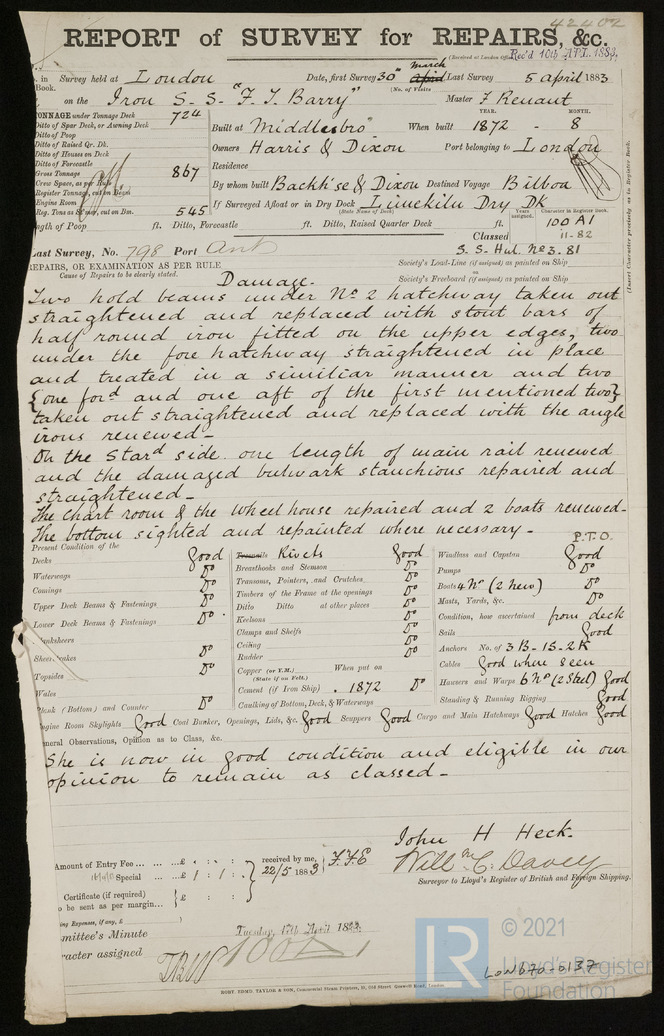 42402
REPORT of SURVEY for REPAIRS, &c.
(Received at London Office Rec'd 10th APL. 1883.
in Survey held at London Date, first Survey 30th March April Last Survey 5 April 1883
Book. (No. of Visits
on the Iron S.S. "F. T. Barry" Master F Renaut
TONNAGE under Tonnage Deck 724
Ditto of Spar Deck, or Awning Deck
Ditto of Poop
Ditto of Raised Qr. Dk.
Ditto of Houses on Deck
Ditto of Forecastle
Gross Tonnage 867
Crew Space, as per Rule
Register Tonnage, cut on Beam
Engine Room
Reg. Tons as cut on Bm. 545
YEAR. MONTH.
Built at Middlesbro" When built 1872 - 8
Owners Harris & Dixon Port belonging to London
Residence
By whom built Backh'se & Dixon Destined Voyage Bilboa
If Surveyed Afloat or in Dry Dock Limekiln Dry Dk
(State Name of Dock)
ngth of Poop ft. Ditto, Forecastle ft. Ditto, Raised Quarter Deck ft.
Years assigned. Character in Register Book.
100 A1
Classed 11-82
S. S. Hul. No 3. 81
(Insert Character precisely as in Register Book.
Last Survey, No. 798 Port Ant
REPAIRS, OR EXAMINATION AS PER RULE
Cause of Repairs to be clearly stated.
Society's Load-Line (if assigned) as painted on Ship
or
Society's Freeboard (if assigned) as painted on Ship
Damage.
Two hold beams under No 2 hatchway taken out
straightened and replaced with stout bars of
half round iron fitted on the upper edges, two
under the fore hatchway straightened in place
and treated in a similiar manner and two
{one ford and one aft of the first mentioned two}
taken out straightened and replaced with the angle
irons renewed_
On the Stard side one length of main rail renewed
and the damaged bulwark stanchions repaired and
straightened_
The chart room & the wheel house repaired and 2 boats renewed-
The bottom sighted and repainted where necessary_
P.T.O.
Present Condition of the
Decks Good
Waterways Do
Comings Do
Upper Deck Beams & Fastenings Do
Lower Deck Beams & Fastenings Do
Sheerstrakes Do
Topsides Do
Wales
Plank (Bottom) and Counter Do
Treenails Rivets Good
Breasthooks and Stemson Do
Transoms, Pointers, and Crutches Do
Timbers of the Frame at the openings Do
Ditto Ditto at other places Do
Keelsons Do
Clamps and Shelfs Do
Ceiling Do
Rudder Do
Copper (or Y.M.) When put on
(State if on Felt.)
Cement (if Iron Ship) 1872 Do
Caulking of Bottom, Deck, & Waterways
Windlass and Capstan Good
Pumps Do
Boats 4 No (2 new) Do
Masts, Yards, &c. Do
Condition, how ascertained from deck
Sails Good
Anchors No. of 3 B-1S-2K
Cables Good where seen
Hawsers and Warps 6 No (2 Steel) Good
Standing & Running Rigging Good
ngine Room Skylights Good Coal Bunker, Openings, Lids, &c. Good Scuppers Good Cargo and Main Hatchways Good Hatches Good
neral Observations, Opinion as to Class, &c.
She is now in good condition and eligible in our
opinion to remain as classed_
John H Heck.
Will. McC. Davey
Surveyor to Lloyd's Register of British and Foreign Shipping.
Amount of Entry Fee ... £ : :
Special ... £ 1 : 1 :
received by me, F.F.E
22/5 1883
Certificate (if required)
to be sent as per margin... £ : :
ing Expenses, if any, £
mmittee's Minute Tuesday, 17th April 1883.
racter assigned 100A1
ROBT. EDMD. TAYLOR & SON, Commercial Steam Printers, 19, Old Street, Goswell Road, London.
LR
© 2021
Lloyd's Register
Foundation
LON670-0137